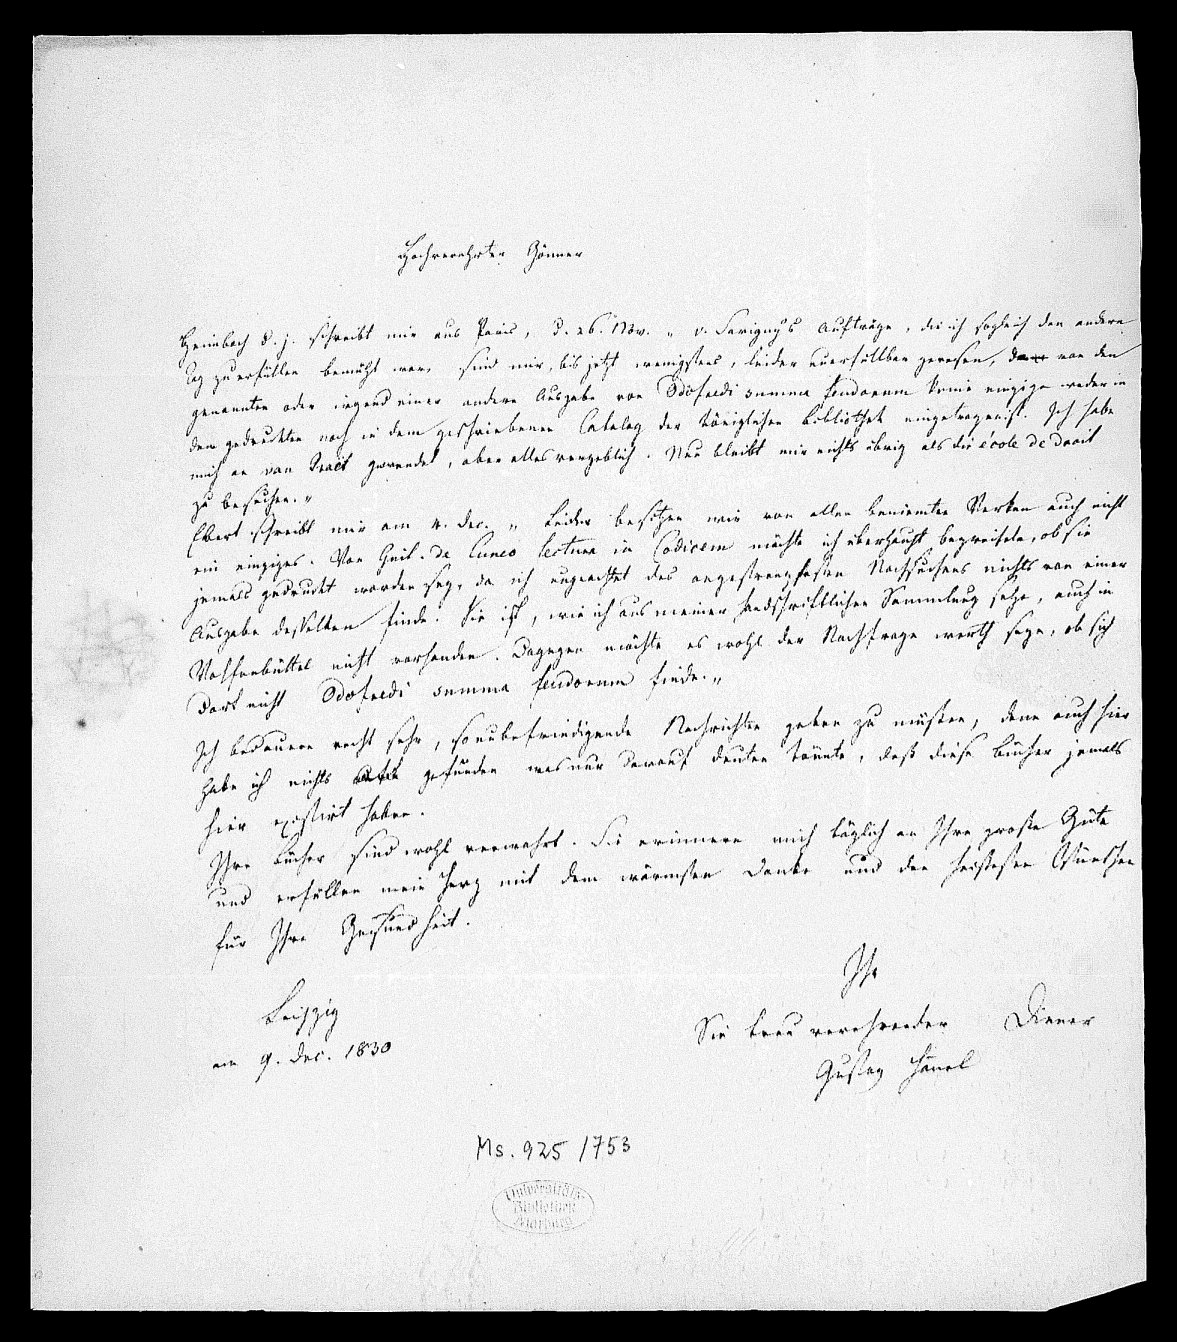 Hochverehrter Gönner
Heimbach d. j. schreibt mir aus Paris, d. 26. Nov. „ v. Savigny's Aufträge, die ich sogleich den andern
Tag zu erfüllen bemüht war, sind mir, bis jetzt wenigstens, leider unerfüllbar gewesen, da von den
genannten oder irgend einer andern Ausgabe von Odofredi summa feudorum keine einzige weder in
dem gedruckten noch in dem geschriebenen Catalog der königlichen Bibliothek eingetragen ist. Ich habe
mich an van Praet gewendet, aber alles vergeblich. Nun bleibt mir nichts übrig als die école de droit
zu besuchen.„
Ebert schreibt mir am 4. Dec. „ Leider besitzen wir von allen benannten Werken auch nicht
ein einziges. Von Guil. de Cuneo lectura in Codicem möchte ich überhaupt bezweifeln, ob sie
jemals gedruckt worden sey, da ich ungeachtet des angestrengtesten Nachsuchens nichts von einer
Ausgabe desselben finde. Sie ist, wie ich aus meiner handschriftlichen Sammlung sehe, auch in
Wolfenbüttel nicht vorhanden. Dagegen möchte es wohl der Nachfrage werth seyn, ob sich
dort nicht Odofredi summa feudorum finde.„
Ich bedauere recht sehr, so unbefriedigende Nachrichten geben zu müssen, denn auch hier
habe ich nichts gefunden was nur darauf deuten könnte, daß diese Bücher jemals
hier existirt haben.
Ihre Bücher sind wohl verwahrt. Sie erinnern mich täglich an Ihre große Güte
und erfüllen mein Herz mit dem wärmsten Danke und den heißesten Wünschen
für Ihre Gesundheit.
Ihr
Leipzig
Sie treu verehrender Diener
am 9. Dec. 1830
Gustav Hänel
Ms. 925/753
Universitäts-
Bibliothek
Marburg